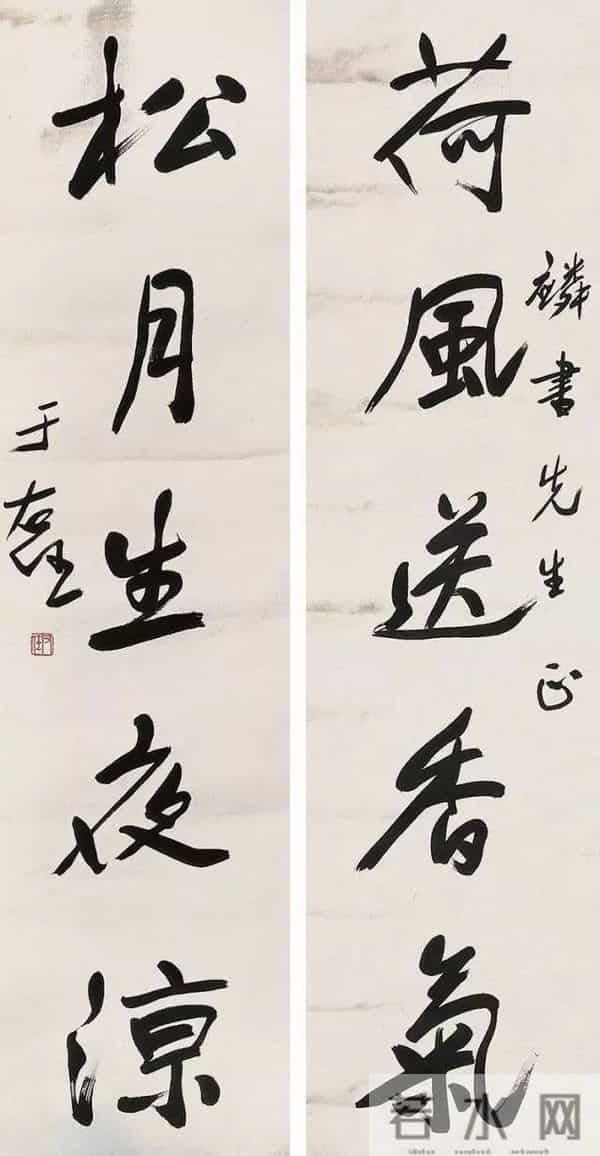 麟書先生正
荷風送香氣
松月生夜涼
于右任
若水网